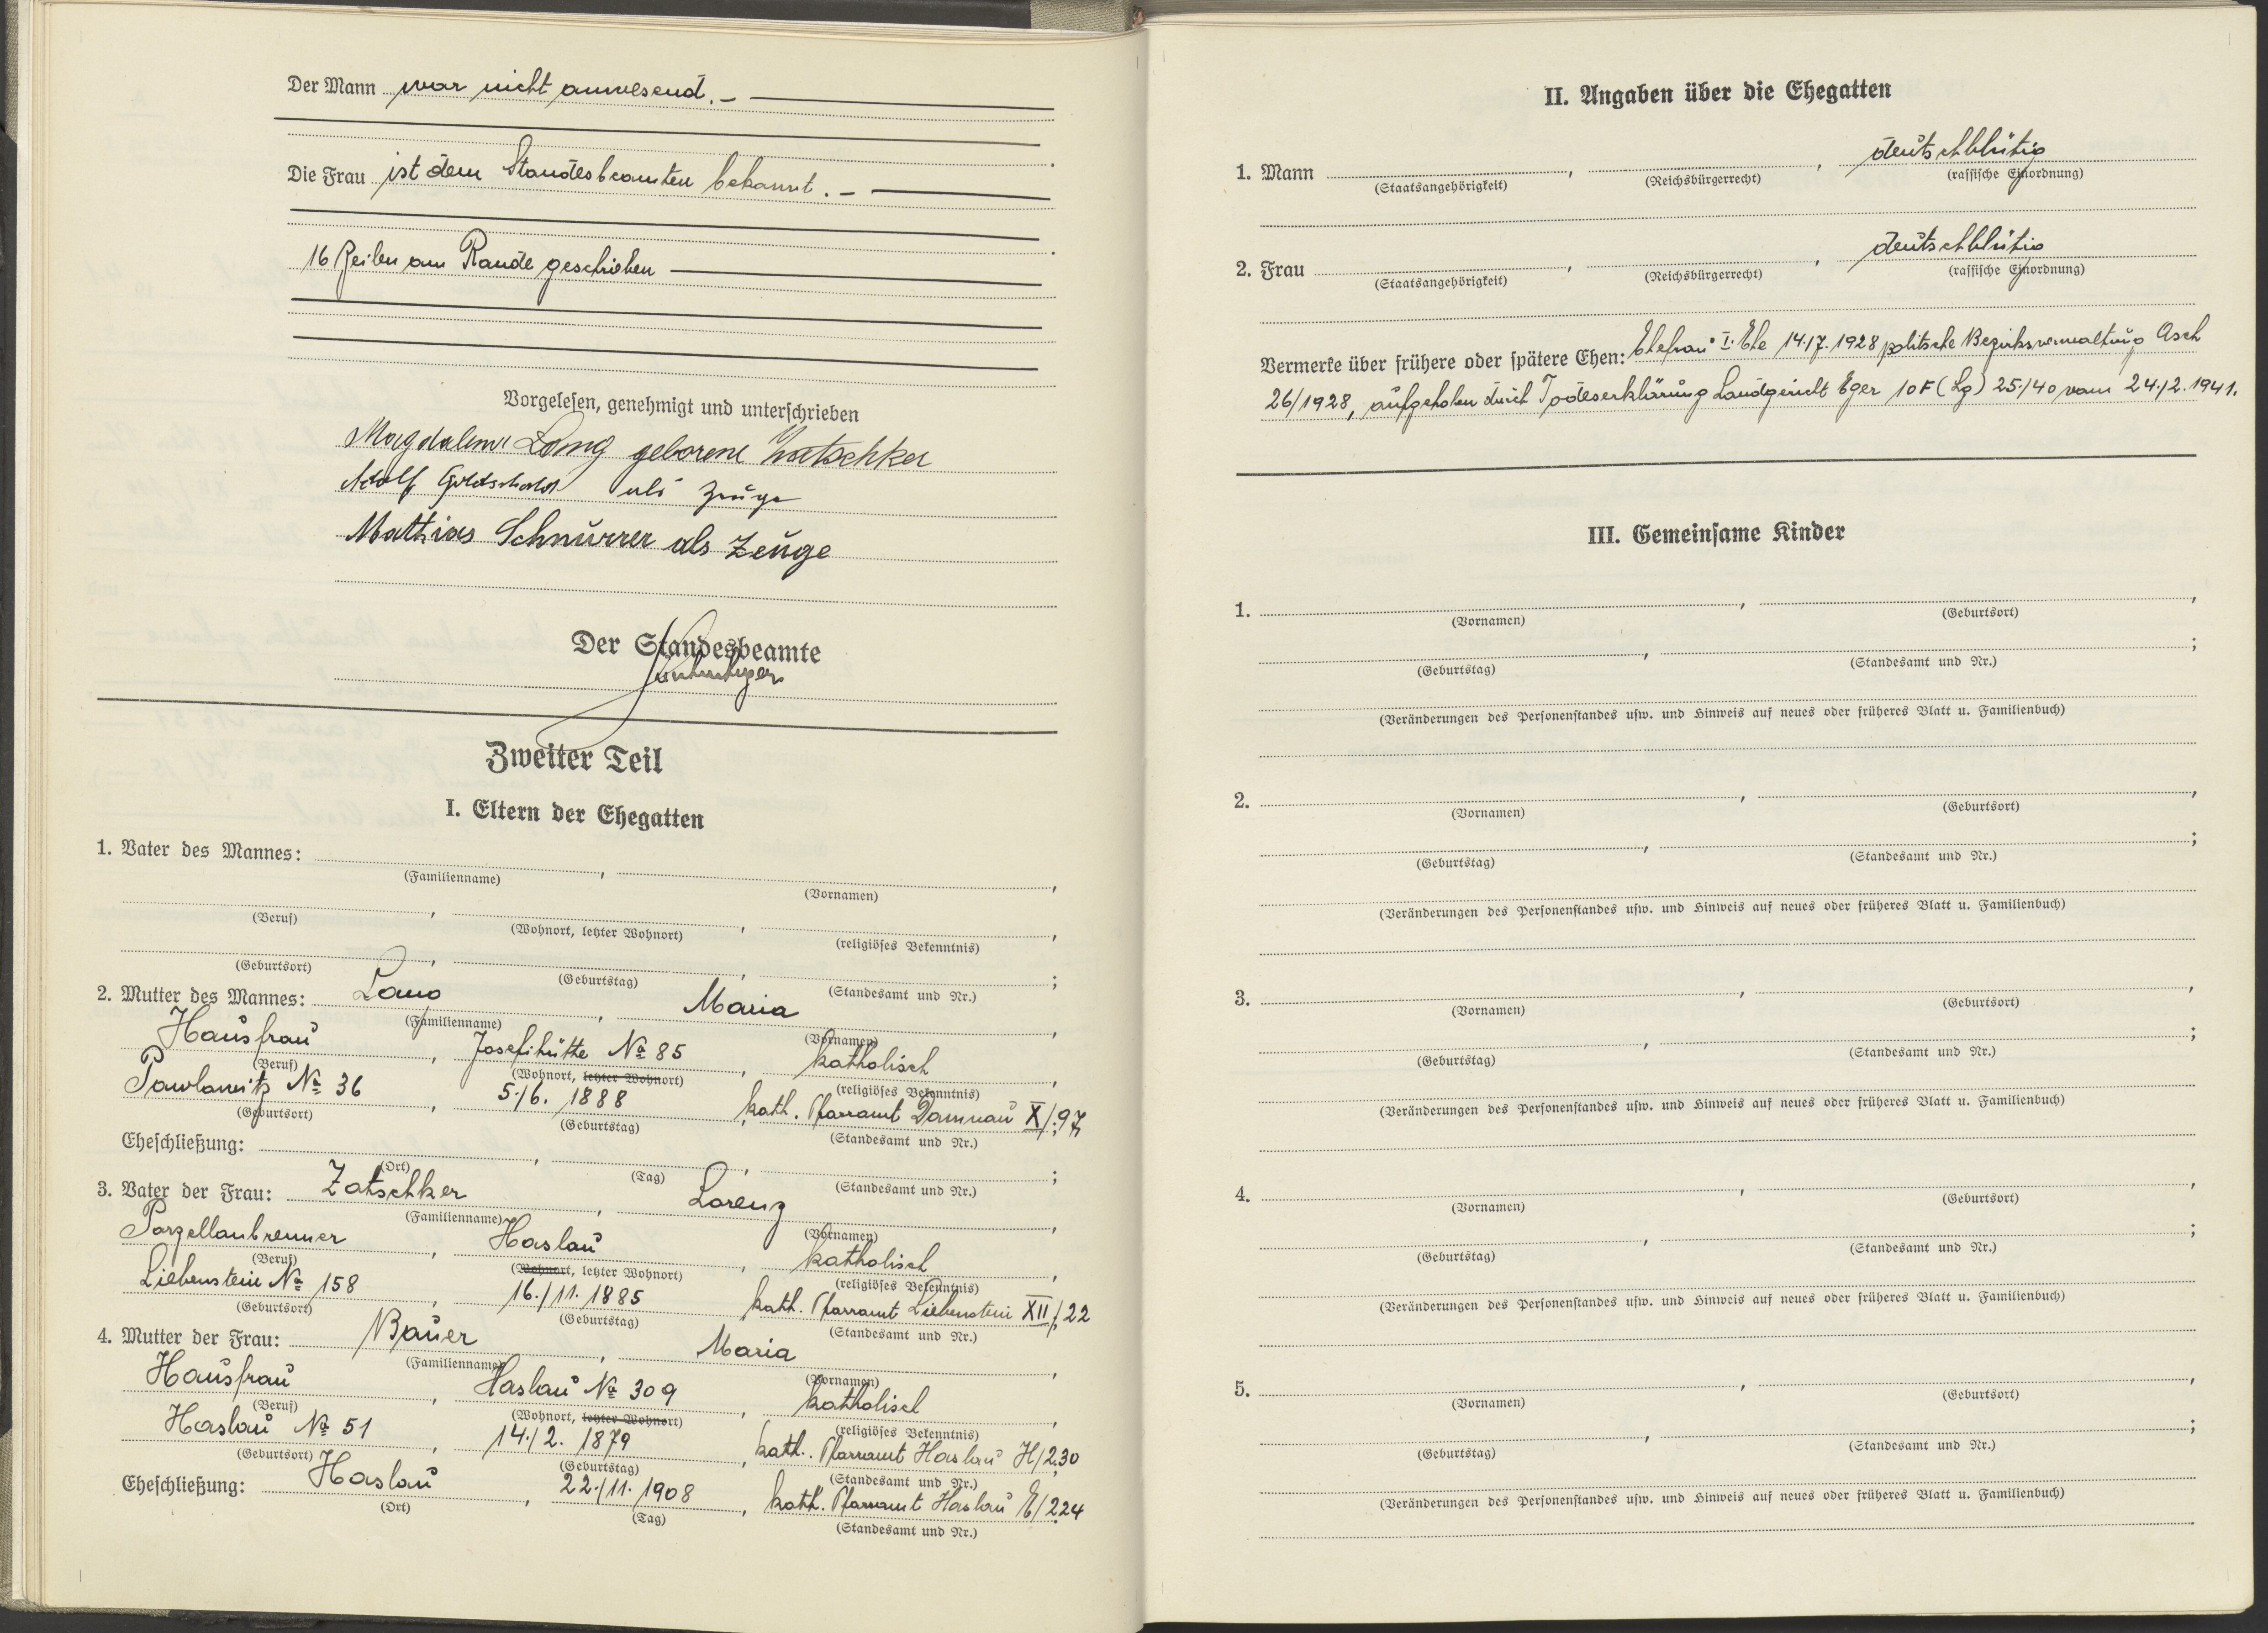 Der Mann war nicht anwesend. –
Die Frau ist dem Standesbeamten bekannt. –
16 Zeilen am Rande geschrieben
Vorgelesen, genehmigt und unterschrieben
Magdalena Lang geborene Zatschker
Adolf als Zeuge
Mathias Schnurrer als Zeuge
Der Standesbeamte
Zweiter Teil
I. Eltern der Ehegatten
1. Vater des Mannes: ,
(Familienname) (Vornamen)
(Beruf) (Wohnort, letzter Wohnort) (religiöses Bekenntnis)
(Geburtsort) (Geburtstag) (Standesamt und Nr.)
2. Mutter des Mannes: Lang, Maria,
(Familienname) (Vornamen)
Hausfrau, Josefihütte № 85, katholisch,
(Beruf) (Wohnort, letzter Wohnort) (religiöses Bekenntnis)
Pawlowitz № 36, 5./6. 1888, kath. Pfarramt Damnau X/97;
(Geburtsort) (Geburtstag) (Standesamt und Nr.)
Eheschließung: , , ;
(Ort) (Tag) (Standesamt und Nr.)
3. Vater der Frau: Zatschker, Lorenz,
(Familienname) (Vornamen)
Porzellanbrenner, Haslau, katholisch,
(Beruf) (Wohnort, letzter Wohnort) (religiöses Bekenntnis)
Liebenstein № 158, 16./11. 1885, kath. Pfarramt Liebenstein XII/22;
(Geburtsort) (Geburtstag) (Standesamt und Nr.)
4. Mutter der Frau: Bauer, Maria,
(Familienname) (Vornamen)
Hausfrau, Haslau № 309, katholisch,
(Beruf) (Wohnort, letzter Wohnort) (religiöses Bekenntnis)
Haslau № 51, 14./2. 1879, kath. Pfarramt Haslau H/230;
(Geburtsort) (Geburtstag) (Standesamt und Nr.)
Eheschließung: Haslau, 22./11. 1908, kath. Pfarramt Haslau E/224
(Ort) (Tag) (Standesamt und Nr.)
II. Angaben über die Ehegatten
1. Mann , , deutschblütig
(Staatsangehörigkeit) (Reichsbürgerrecht) (rassische Einordnung)
2. Frau , , deutschblütig
(Staatsangehörigkeit) (Reichsbürgerrecht) (rassische Einordnung)
Vermerke über frühere oder spätere Ehen: Ehefrau I. Ehe 14./7. 1928 politische Bezirksverwaltung Asch
26/1928, aufgehoben durch Todeserklärung Landgericht Eger 10 F (Lg) 25/40 vom 24./2. 1941.
III. Gemeinsame Kinder
1. , ,
(Vornamen) (Geburtsort)
(Geburtstag) (Standesamt und Nr.)
(Veränderungen des Personenstandes usw. und Hinweis auf neues oder früheres Blatt u. Familienbuch)
2. , ,
(Vornamen) (Geburtsort)
(Geburtstag) (Standesamt und Nr.)
(Veränderungen des Personenstandes usw. und Hinweis auf neues oder früheres Blatt u. Familienbuch)
3. , ,
(Vornamen) (Geburtsort)
(Geburtstag) (Standesamt und Nr.)
(Veränderungen des Personenstandes usw. und Hinweis auf neues oder früheres Blatt u. Familienbuch)
4. , ,
(Vornamen) (Geburtsort)
(Geburtstag) (Standesamt und Nr.)
(Veränderungen des Personenstandes usw. und Hinweis auf neues oder früheres Blatt u. Familienbuch)
5. , ,
(Vornamen) (Geburtsort)
(Geburtstag) (Standesamt und Nr.)
(Veränderungen des Personenstandes usw. und Hinweis auf neues oder früheres Blatt u. Familienbuch)